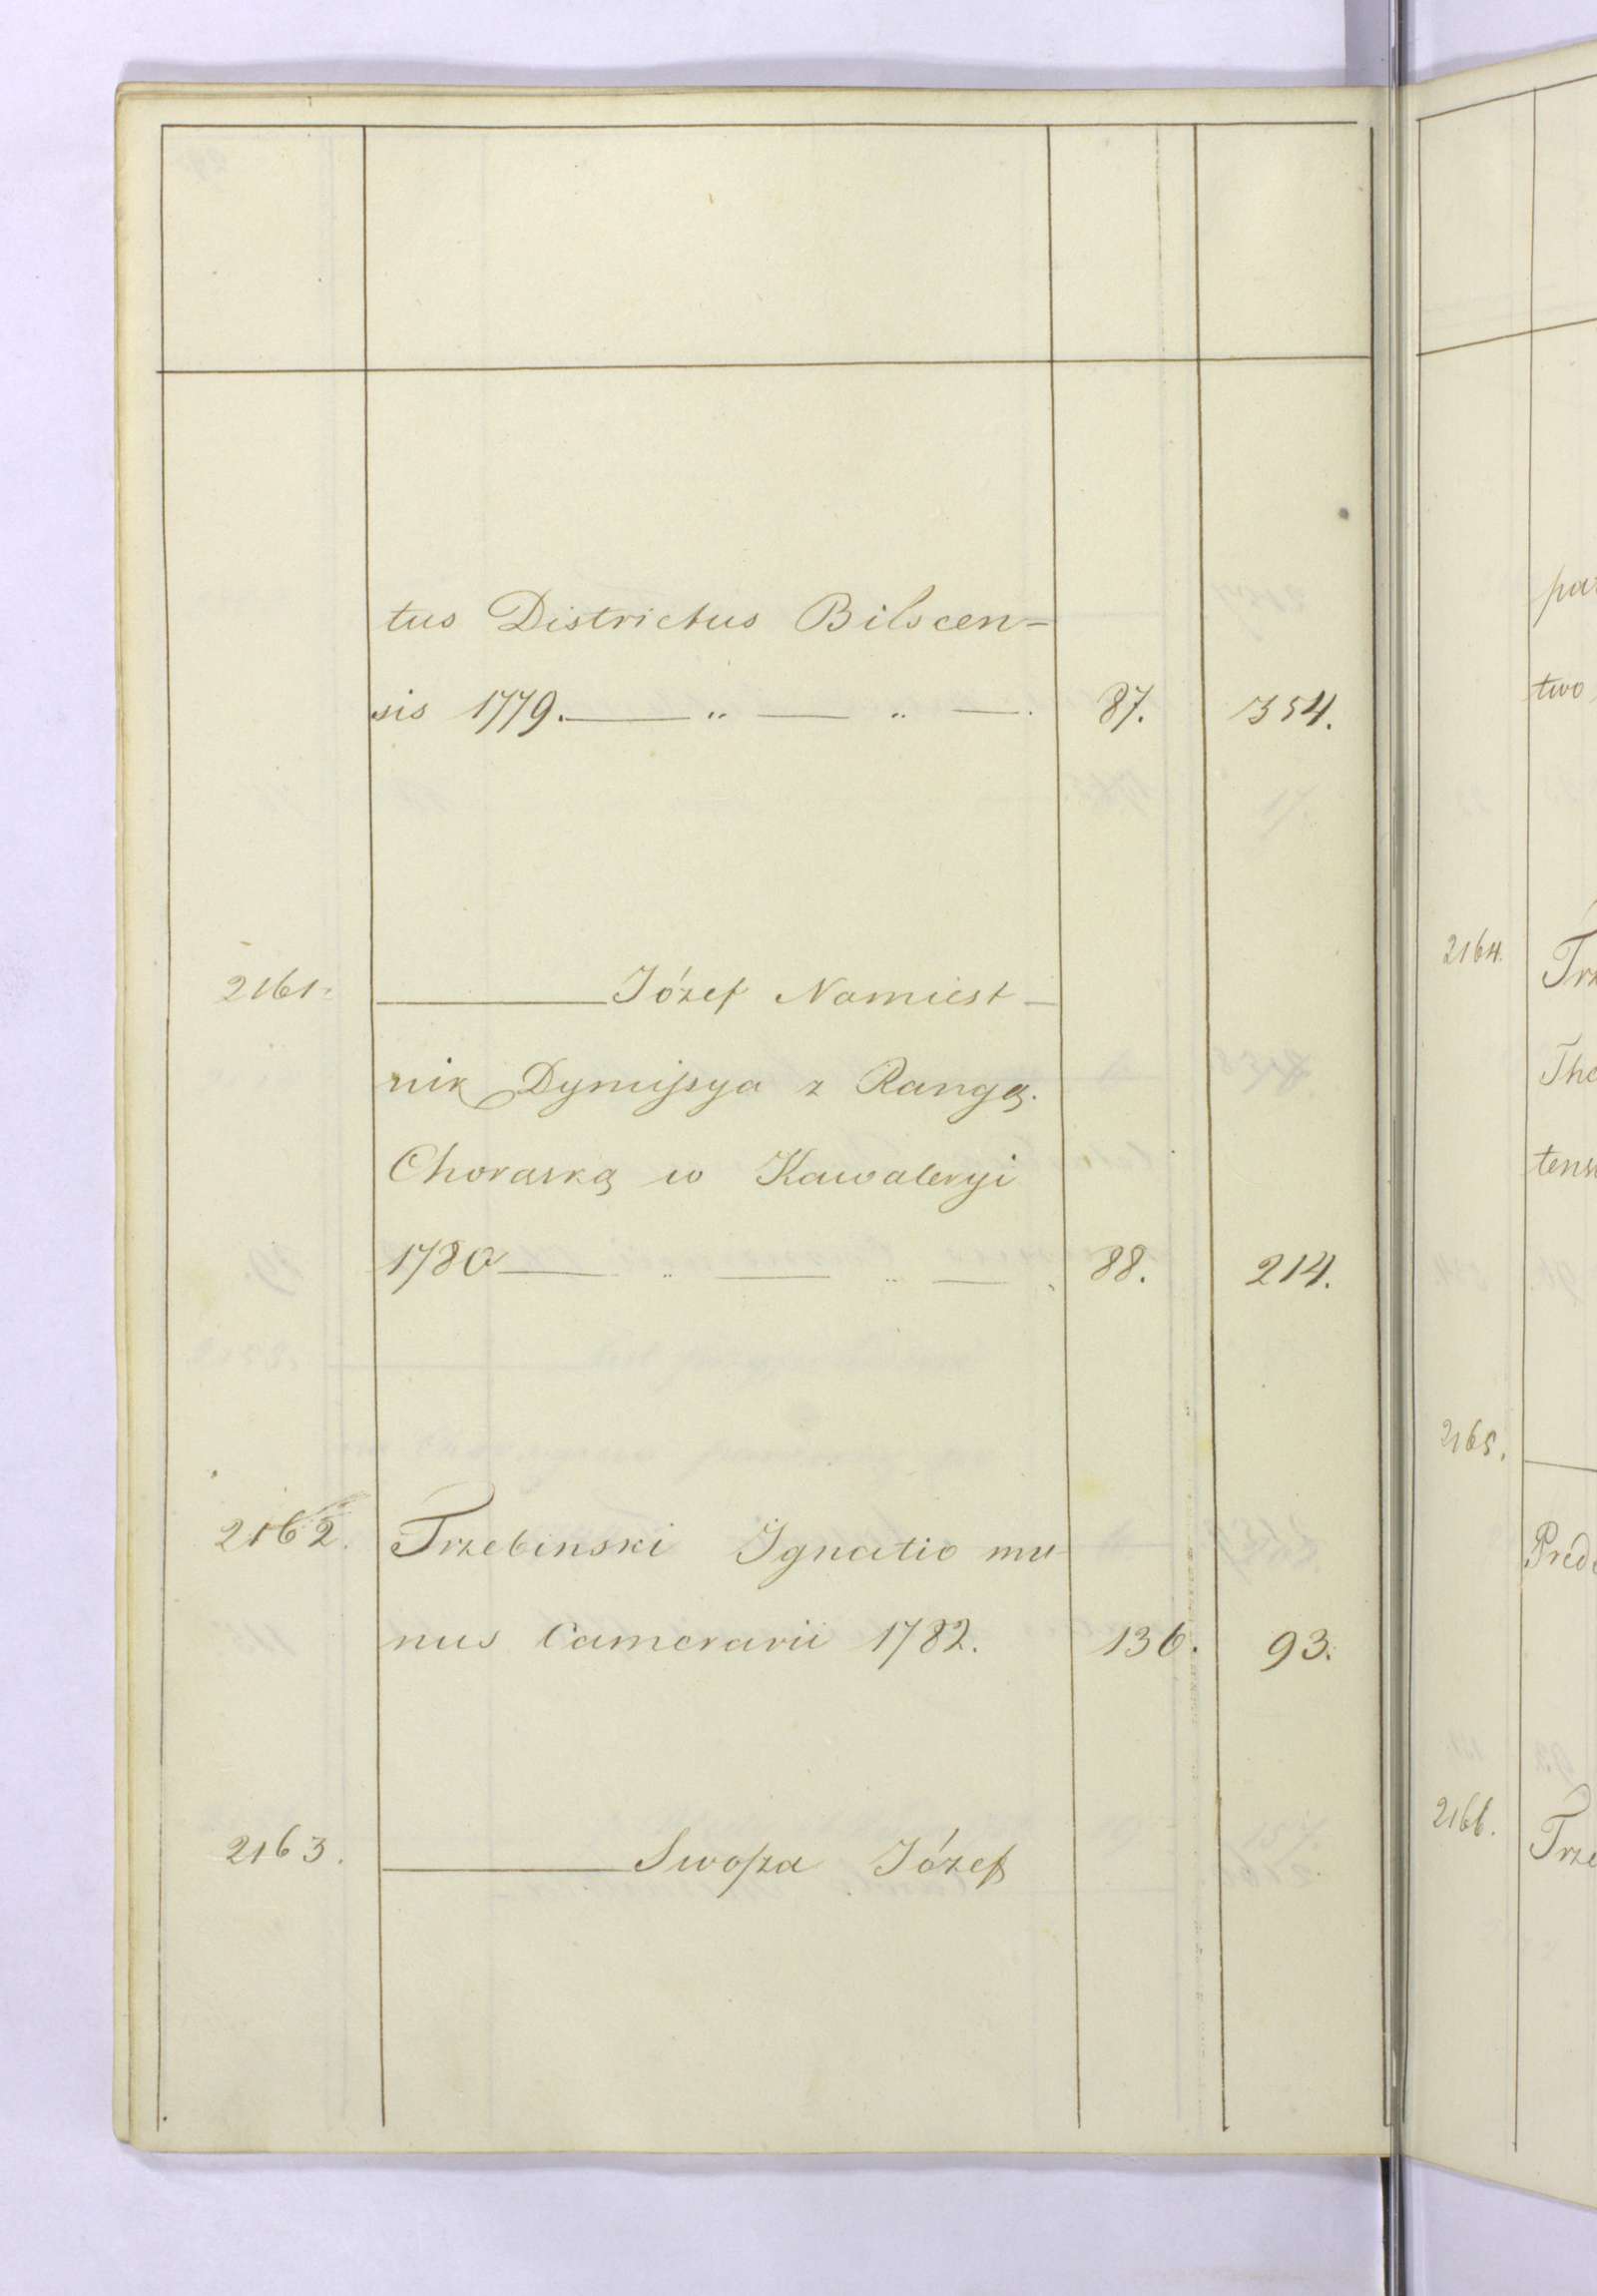 tus Districtus Bilscen=
sis 1779. — „ — „ — . 87. 354.
2161. — Józef Namiest-
nik Dymissya z Rangą
Chorąską w Kawaleryi
1780 — „ — „ — 88. 214.
2162. Trzebinski Ignatio mu-
nus Camerarii 1782. 136. 93.
2163. — Swoſza Józef
par
two
2164. Trz
The
tens
2165.
Pred
2166. Trze